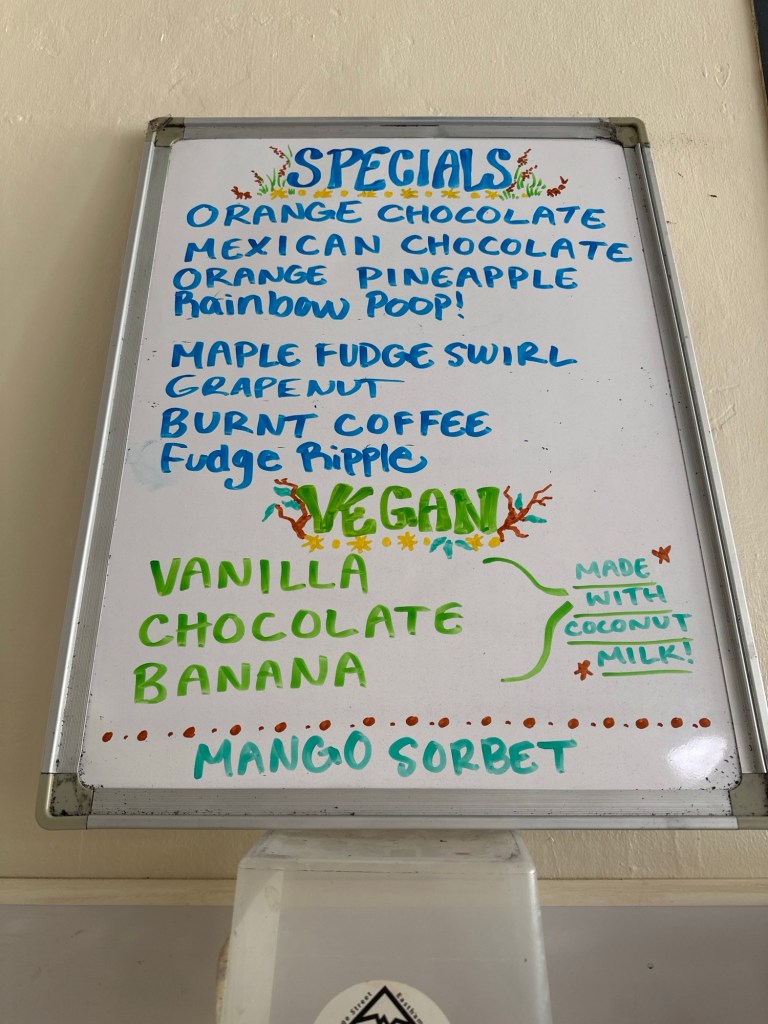 SPECIALS
ORANGE CHOCOLATE
MEXICAN CHOCOLATE
ORANGE PINEAPPLE
Rainbow Poop!
MAPLE FUDGE SWIRL
GRAPENUT
BURNT COFFEE
Fudge Ripple
VEGAN
VANILLA
CHOCOLATE
BANANA
MADE
WITH
COCONUT
MILK!
MANGO SORBET
Street